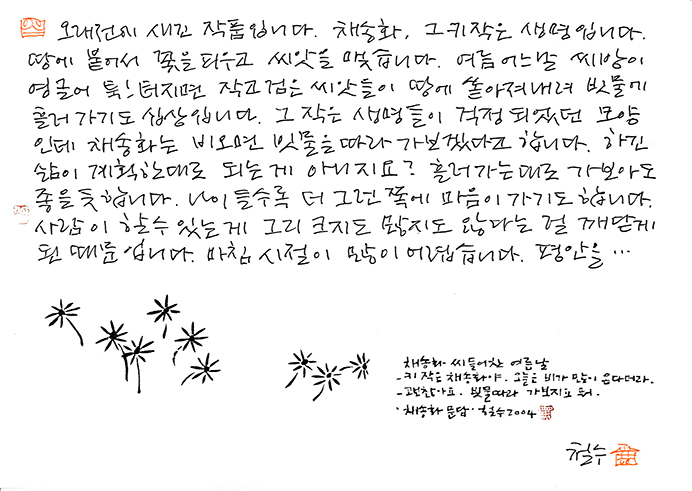 오래전에 새긴 작품입니다. 채송화, 그 키작은 생명입니다.
땅에 붙어서 꽃을 피우고 씨앗을 맺습니다. 여름 어느날 씨방이
영글어 툭! 터지면 작고 검은 씨앗들이 땅에 쏟아져내려 빗물에
흘러 가기도 십상입니다. 그 작은 생명들이 걱정 되었던 모양
인데 채송화는 비오면 빗물을 따라 가보겠다고 합니다. 하긴
삶이 계획한대로 되는게 아니지요? 흘러가는대로 가보아도
좋을듯합니다. 나이들수록 더 그런 쪽에 마음이 가기도 합니다.
사람이 할 수 있는게 그리 크지도 많지도 않다는 걸 깨닫게
된 때문입니다. 마침 시절이 많이 어렵습니다. 평안을 …
채송화 씨들어찬 여름날
-키 작은 채송화야. 오늘은 비가 많이 온다더라.
-괜찮아요. 빗물따라 가보지요 뭐.
·채송화 문답· 철수2004
철수